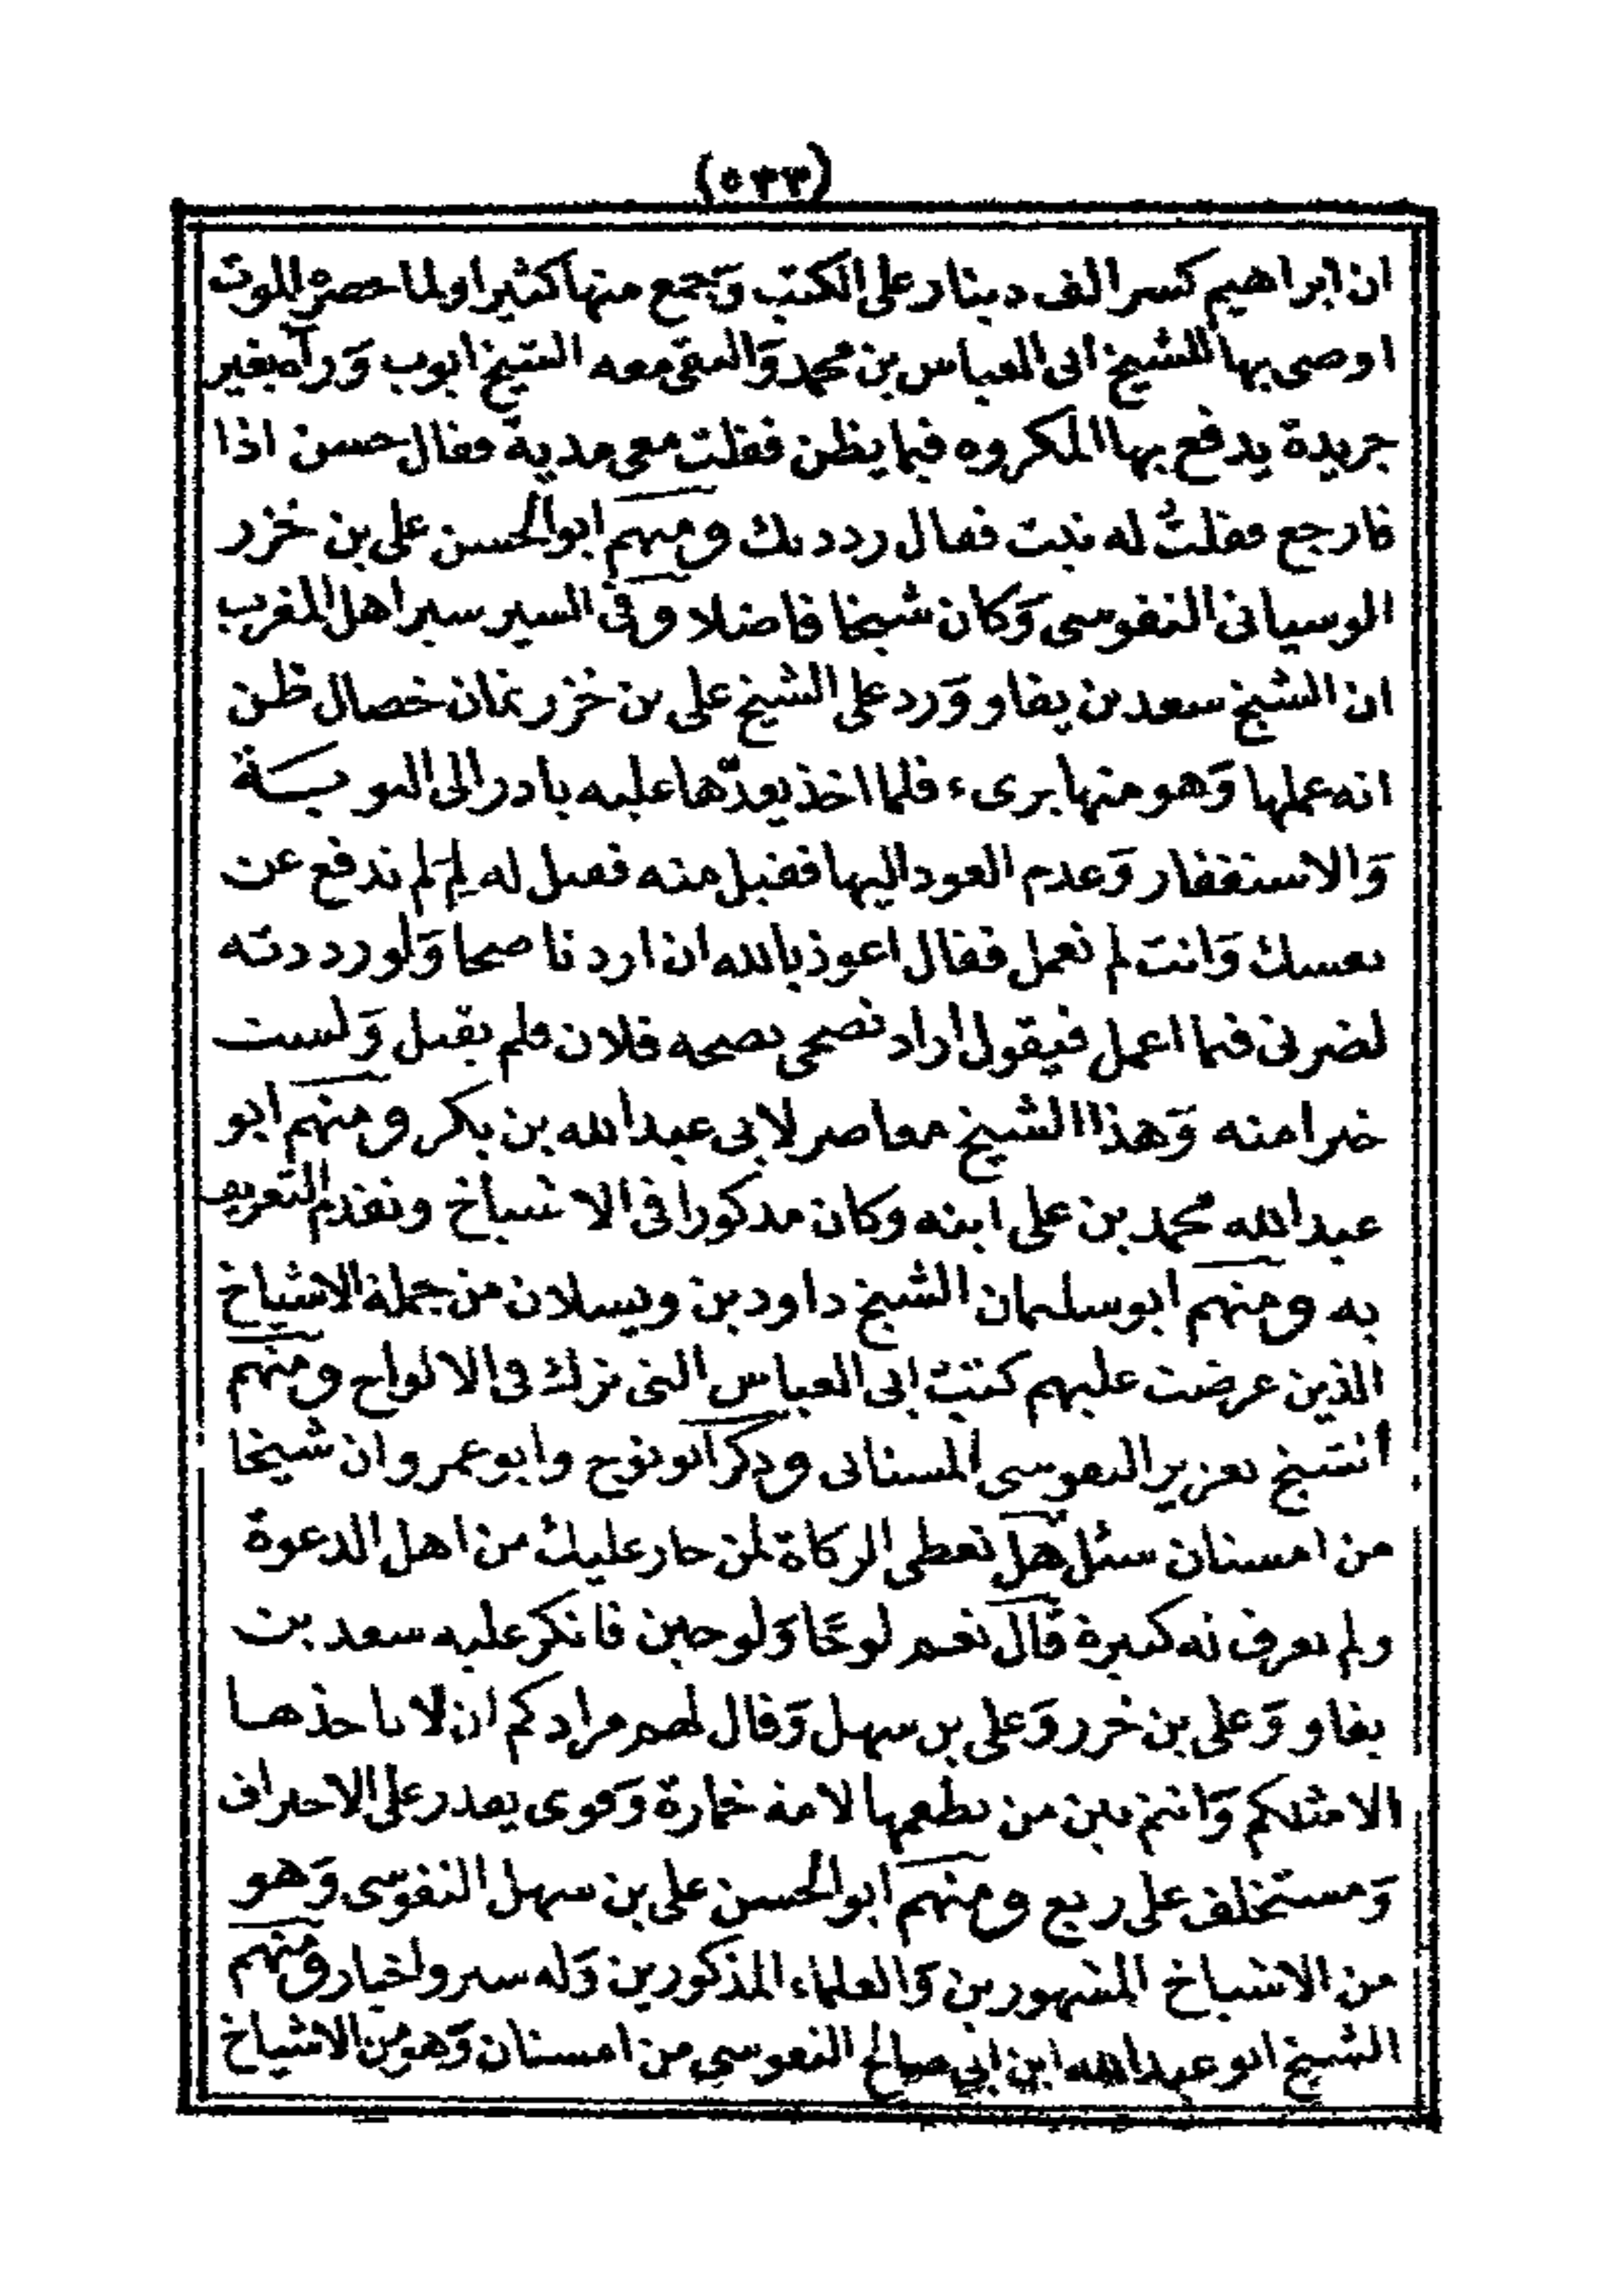 (٥٣٣)
ان ابراهيم كسر الف دينار على الكتب وَجمع منها كثيرا ولما حضره الموت
اوصى بها للشيخ ابى العباس بن محمد وَالتقى معه الشيخ ايوب وَرآه بغير
جريدة يدفع بها المكروه فيما يظن فقلت معى مدية فقال حسن اذا
فارجع فقلتُ له تبت فقال رددىك ومنهم ابوالحسن على بن خزر
الوسيانى النفوسى وَكان شيخا فاضلا وفى السير سير اهل المغرب
ان الشيخ سعد بن يفاو وَرد على الشيخ على بن خزر ثمان خصال ظن
انه عملها وَهو منها برىء فلما اخذ يعدّها عليه بادر الى التوبَة
وَالاستغفار وَعدم العود اليها فقبل منه فقيل له لِمَ لم تدفع عن
نفسك وَانت لم تعمل فقال اعوذ بالله ان ارد ناصحا وَلو رددته
لضرنى فيما اعمل فيقول اراد نصحى نصحه فلان فلم يقبل وَلست
خيرا منه وَهذا الشيخ معاصر لابى عبدالله بن بكر ومنهم ابو
عبدالله محمد بن على ابنه وكان مذكورا فى الاشياخ وتقدم التعريف
به ومنهم ابو سليمان الشيخ داود بن ويسلان من جملة الاشياخ
الذين عرضت عليهم كتب ابى العباس التى ترك فى الالواح ومنهم
الشيخ يعزير النفوسى المسنانى وذكر ابو نوح وابو عمرو ان شيخا
من امسنان سئل هل تعطى الزكاة لمن جاز عليك من اهل الدعوة
ولم تعرف له كبيرة قَال نعم لوحًا وَلوحين فانكر عليه سعد بن
يفاو وَعلى بن خزر وَعلى بن سهل وَقال لهم مرادكم ان لا ياخذها
الا مثلكم وَانتم بين من يطعمها لامة خمارة وَقوى يقدر على الاحتراف
وَمستخلف على ربع ومنهم ابوالحسن على بن سهل النفوسى وَهو
من الاشياخ المشهورين وَالعلماء المذكورين وَله سير واخبار ومنهم
الشيخ ابو عبدالله ابن ابي صالح النفوسي من امسنان وَهو من الاشياخ